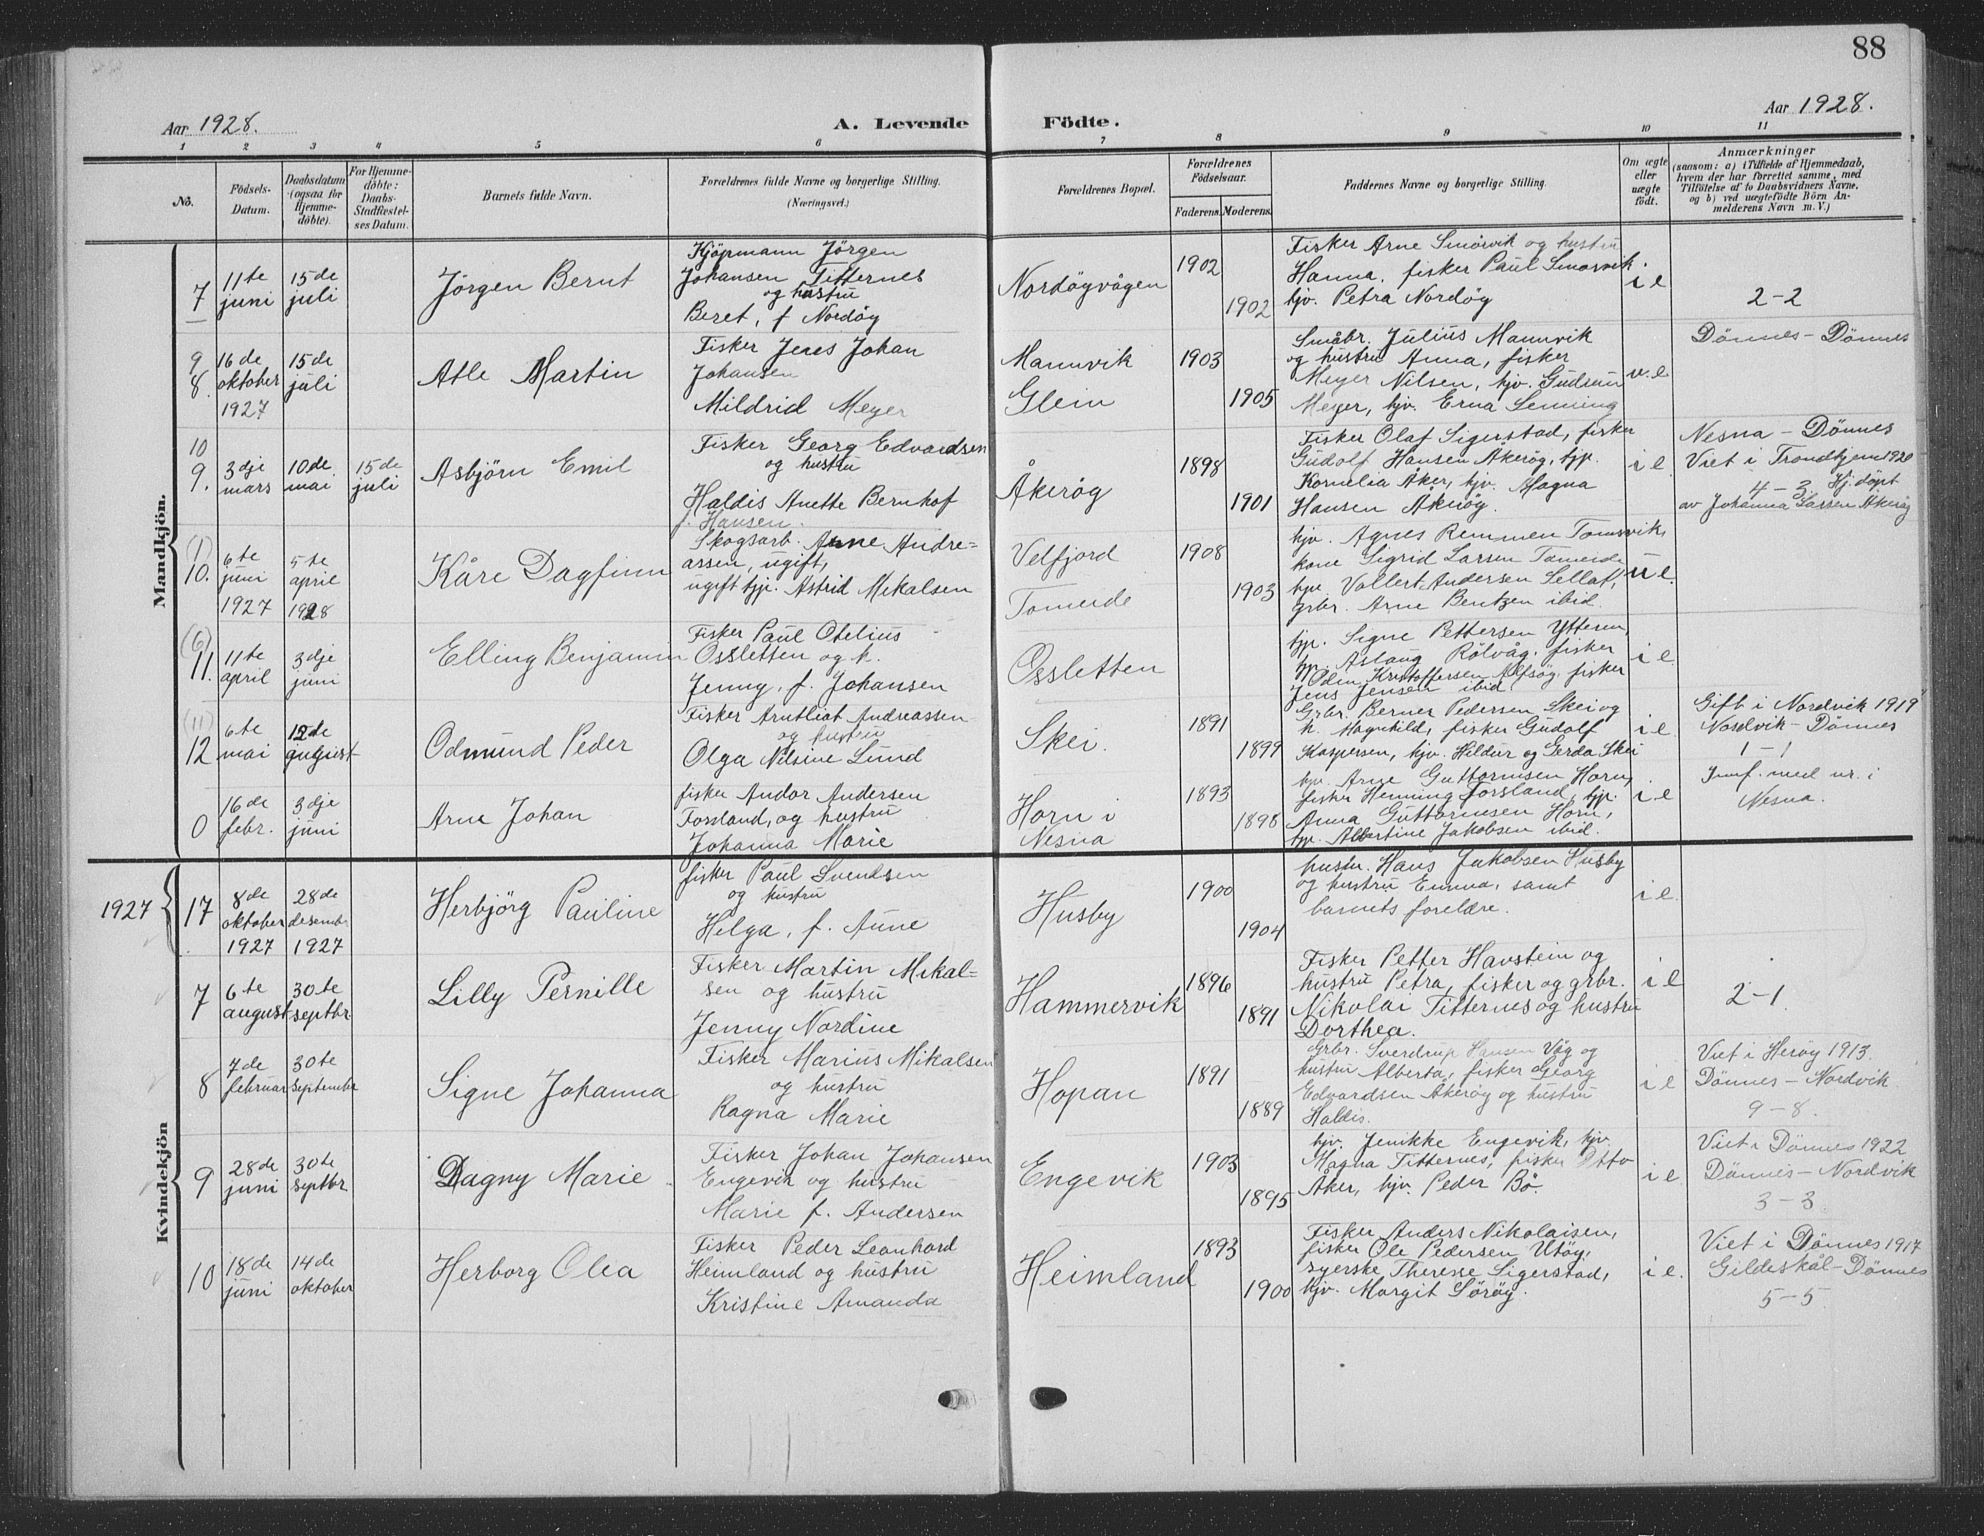 88
Aar 1928.
A. Levende Födte.
Aar 1928.
1 2 3 4 5 6 7 8 9 10 11
No.
Födsels-
Datum.
Daabsdatum
(ogsaa for
Hjemme-
döbte).
For Hjemme-
döbte:
Daabs-
Stadfæstel-
ses Datum.
Barnets fulde Navn.
Forældrenes fulde Navne og borgerlige Stilling.
(Næringsvei.)
Forældrenes Bopæl.
Forældrenes
Födselsaar.
Faderens. Moderens.
Faddernes Navne og borgerlige Stilling.
Om ægte
eller
uægte
födt.
Anmærkninger
(saasom: a) i Tilfælde af Hjemmedaab,
hvem der har forrettet samme, med
Tilföielse af to Daabsvidners Navne,
og b) ved uægtefödte Börn An-
melderens Navn m. V.)
Mandkjön.
7
11te
juni
15de
juli
Jörgen Bernt
Kjöpmann Jörgen
Johansen Titternes
og hustru
Beret, f Nordöy
Nordöyvågen
1902
1902
Fisker Arne Smörvik og hustru
Hanna, fisker Paul Smörvik.
tjv. Petra Nordöy
i e
2-2
9
8.
16de
oktober
1927
15de
juli
Atle Martin
Fisker Jens Johan
Johansen
Mildrid Meyer
Mannvik
Glein
1903
1905
Småbr. Julius Mannvik
og hustru Anna, fisker
Meyer Nilsen, tjv. Gudrun
Meyer, tjv. Erna Lenning
u. e
Dönnes - Dönnes
10
9.
3dje
mars
10de
mai
15de
juli
Asbjörn Emil
Fisker Georg Edvardsen
og hustru
Haldis Anette Bernhof
f. Hansen.
Åkeröy
1898
1901
Fisker Olaf Sigerstad, fisker
Gudolf Hansen Åkeröy, tjp.
Kornelia Åker, tjv. Magna
Hansen Åkeröy.
i e
Nesna - Dönnes
Viet i Trondhjem 1920
4 - 3 Hj. döpt
av Johanna Larsen Åkeröy
(1)
10.
6te
juni
1927
5te
april
1928
Kåre Dagfinn
Skogsarb. Arne Andre=
assen, ugift,
ugift tjp. Astrid Mikalsen
Velfjord
Tomeide
1908
1903
tjv. Agnes Remmen Tomsvik,
kone Sigrid Larsen Tomeide
tjv. Vollert Andersen
grbr. Arne Bentzen ibid.
u e.
(6)
11.
11te
april
3dje
juni
Elling Benjamin
Fisker Paul Otelius
Ossletten og h.
Jenny, f. Johansen
Ossletten
tjp. Signe Pettersen Ytteren,
tjp. Aslaug Rölvåg, fisker
Odin Kristoffersen Alfsöy, fisker
Jens Jensen ibid
i e
(11)
12
6te
mai
12de
august
Odmund Peder
Fisker Arntliot Andreassen
og hustru
Olga Nilsine Lund
Skei.
1891
1899
Grbr. Berner Pedersen Skei og
h. Magnhild, fisker Gudolf
Kaspersen, tjv. Hildur og Gerda Skei
i e
Gift i Nordvik 1919
Nordvik - Dönnes
1 - 1
0
16de
febr.
3dje
juni
Arne Johan
fisker Andor Andersen
Forsland, og hustru
Johanna Marie
Horn i
Nesna
1893
1898
tjv. Arne Guttormsen Horn,
fisker Henning Forsland, tjp.
Anna Guttormsen Horn,
tjp. Albertine Jakobsen ibid.
i e
Innf. med nr. i
Nesna.
Kvindekjön
1927
17
8de
oktober
1927
28de
desemb.
1927
Herbjörg Pauline
fisker Paul Svendsen
og hustru
Helga, f. Aune
Husby
1900
1904
Hans Jakobsen Husby
og hustru Emma, samt
barnets foreldre.
i e.
7
6te
august
30te
septbr
Lilly Pernille
Fisker Martin Mikal=
sen og hustru
Jenny Nordine
Hammervik
1896
1891
Fisker Petter Havstein og
hustru Petra, fisker og grbr.
Nikolai Titternes og hustru
Dorthea.
i e
2-1
8
7de
februar
30te
september
Signe Johanna
Fisker Marius Mikalsen
og hustru
Ragna Marie
Hopan
1891
1889
Grbr. Sverdrup Hansen Våg og
hustru Alberta, fisker Georg
Edvardsen Åkeröy og hustru
Haldis.
i e
Viet i Heröy 1913.
Dönnes - Nordvik
9 - 8.
9
28de
juni
30te
septbr
Dagny Marie
Fisker Johan Johansen
Engevik og hustru
Marie f. Andersen
Engevik
1903
1895
tjv. Jenikke Engevik, tjv.
Magna Titternes, fisker Otto
Åker, tjv. Peder Bö.
i e
Viet i Dönnes 1922
Dönnes - Nordvik
3 - 3.
10
18de
juni
14de
oktober
Herborg Olea
Fisker Peder Leonhard
Heimland og hustru
Kristine Amanda
Heimland
1893
1900
Fisker Anders Nikolaisen,
fisker Ole Pedersen Utöy,
syerske Therese Sigerstad,
tjv. Margit Söröy.
i e.
Viet i Dönnes 1917
Gildeskål - Dönnes
5 - 5.